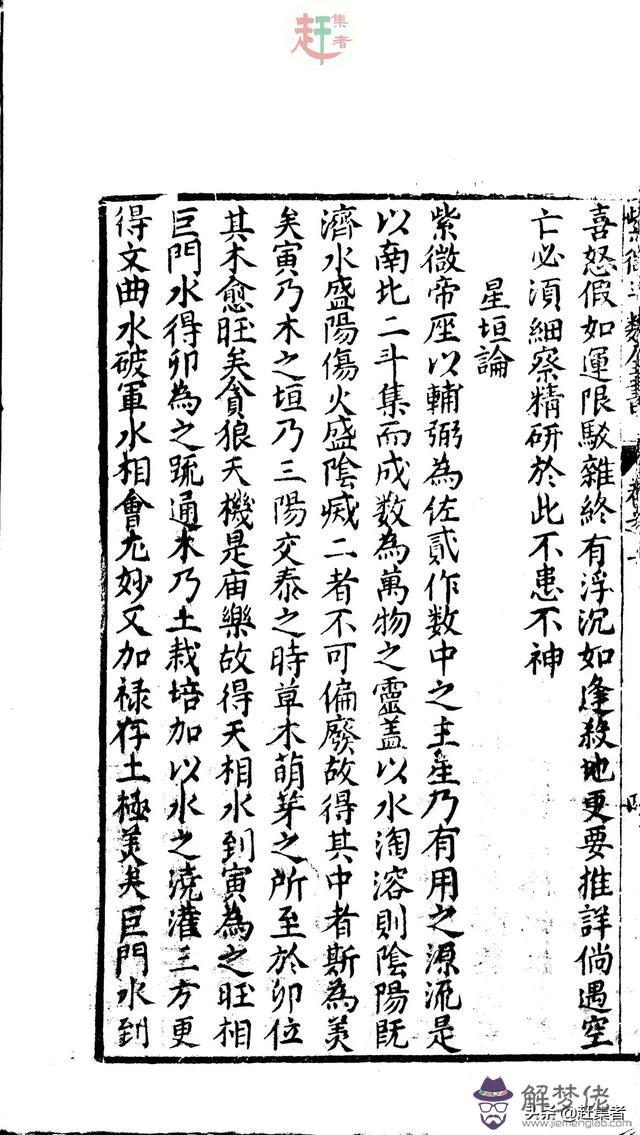 赶集者
喜怒假如運限駁雜終有浮沉如逢殺地更要推詳倘遇空
亡必須細察精研於此不患不神
星垣論
紫微帝座以輔弼為佐貳作数中之主星乃有用之源流是
以南北二斗集而成数為萬物之靈盖以水淘溶則陰陽既
濟水盛陽傷火盛陰滅二者不可偏廢故得其中者斯為美
矣寅乃木之垣乃三陽交泰之時草木萌芽之所至於卯位
其木愈旺矣貪狼天機是庙樂故得天相水到寅為之旺相
巨門水得卯為之疏通木乃土栽培加以水之澆灌三方更
得文曲水破軍水相會尤妙又加禄存土極美矣巨門水到
解梦佬
www.jiemenglab.com
头条@赶集者